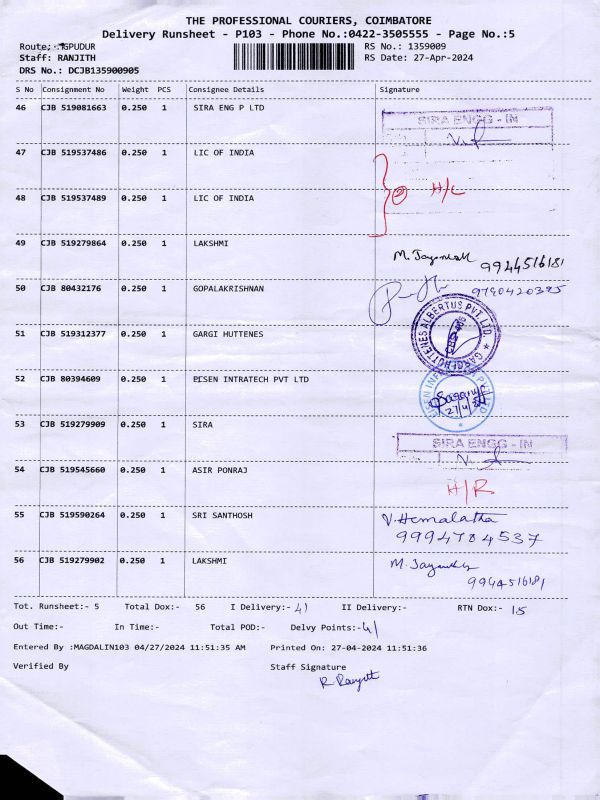 THE PROFESSIONAL COURIERS, COIMBATORE
Delivery Runsheet - P103 - Phone No.:0422-3505555 - Page No.:5
Route: GPUDUR RS No.: 1359009
Staff: RANJITH RS Date: 27-Apr-2024
DRS No.: DCJB135900905
S No Consignment No Weight PCS Consignee Details Signature
46 CJB 519081663 0.250 1 SIRA ENG P LTD SIRA ENGG - IN
47 CJB 519537486 0.250 1 LIC OF INDIA
H/C
48 CJB 519537489 0.250 1 LIC OF INDIA
49 CJB 519279864 0.250 1 LAKSHMI
9944516181
50 CJB 80432176 0.250 1 GOPALAKRISHNAN
51 CJB 519312377 0.250 1 GARGI HUTTENES GARGI HUTTENES ALBERTUS PVT. LTD.
52 CJB 80394609 0.250 1 EISEN INTRATECH PVT LTD
53 CJB 519279909 0.250 1 SIRA SIRA ENGG - IN
54 CJB 519545660 0.250 1 ASIR PONRAJ H/R
55 CJB 519590264 0.250 1 SRI SANTHOSH V. Hemalatha
9994784537
56 CJB 519279902 0.250 1 LAKSHMI
9944516181
Tot. Runsheet:- 5 Total Dox:- 56 I Delivery:- 41 II Delivery:- RTN Dox:- 15
Out Time:- In Time:- Total POD:- Delvy Points:- 41
Entered By :MAGDALIN103 04/27/2024 11:51:35 AM Printed On: 27-04-2024 11:51:36
Verified By Staff Signature